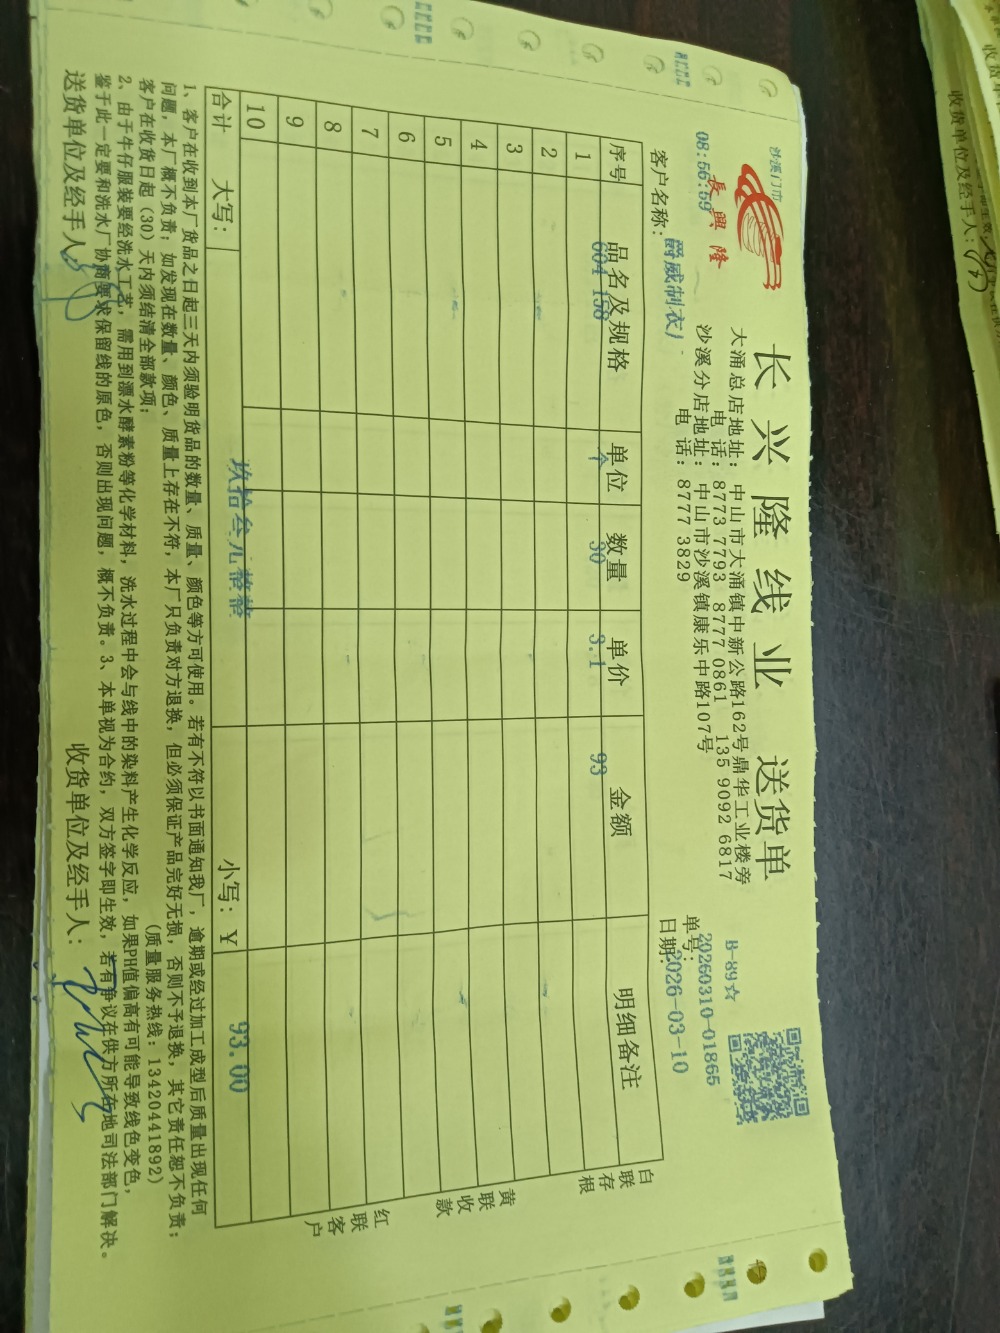 沙溪门市
長興隆
08:56:59
长兴隆线业 送货单
大涌总店地址：中山市大涌镇中新公路162号鼎华工业楼旁
电话：8773 7793 8777 0861 135 9092 6817
沙溪分店地址：中山市沙溪镇康乐中路107号
电话：8777 3829
B-89☆
单号：20260310-01865
日期：2026-03-10
客户名称：爵威制衣厂
序号 品名及规格 单位 数量 单价 金额 明细备注
1 604 158 个 30 3.1 93
2
3
4
5
6
7
8
9
10
合计 大写：玖拾叁元整整 小写：￥ 93.00
白联存根
黄联收款
红联客户
1、客户在收到本厂货品之日起三天内须验明货品的数量、质量、颜色等方可使用。若有不符以书面通知我厂，逾期或经过加工成型后质量出现任何
问题，本厂概不负责；如发现在数量、颜色、质量上存在不符，本厂只负责对方退换，但必须保证产品完好无损，否则不予退换，其它责任恕不负责；
客户在收货日起（30）天内须结清全部款项； (质量服务热线：13420441892)
2、由于牛仔服装要经洗水工艺，需用到漂水酵素粉等化学材料，洗水过程中会与线中的染料产生化学反应，如果PH值偏高有可能导致线色变色，
鉴于此一定要和洗水厂协商要求保留线的原色，否则出现问题，概不负责。3、本单视为合约，双方签字即生效，若有争议在供方所在地司法部门解决。
送货单位及经手人： 收货单位及经手人：
收货单位及经手人：